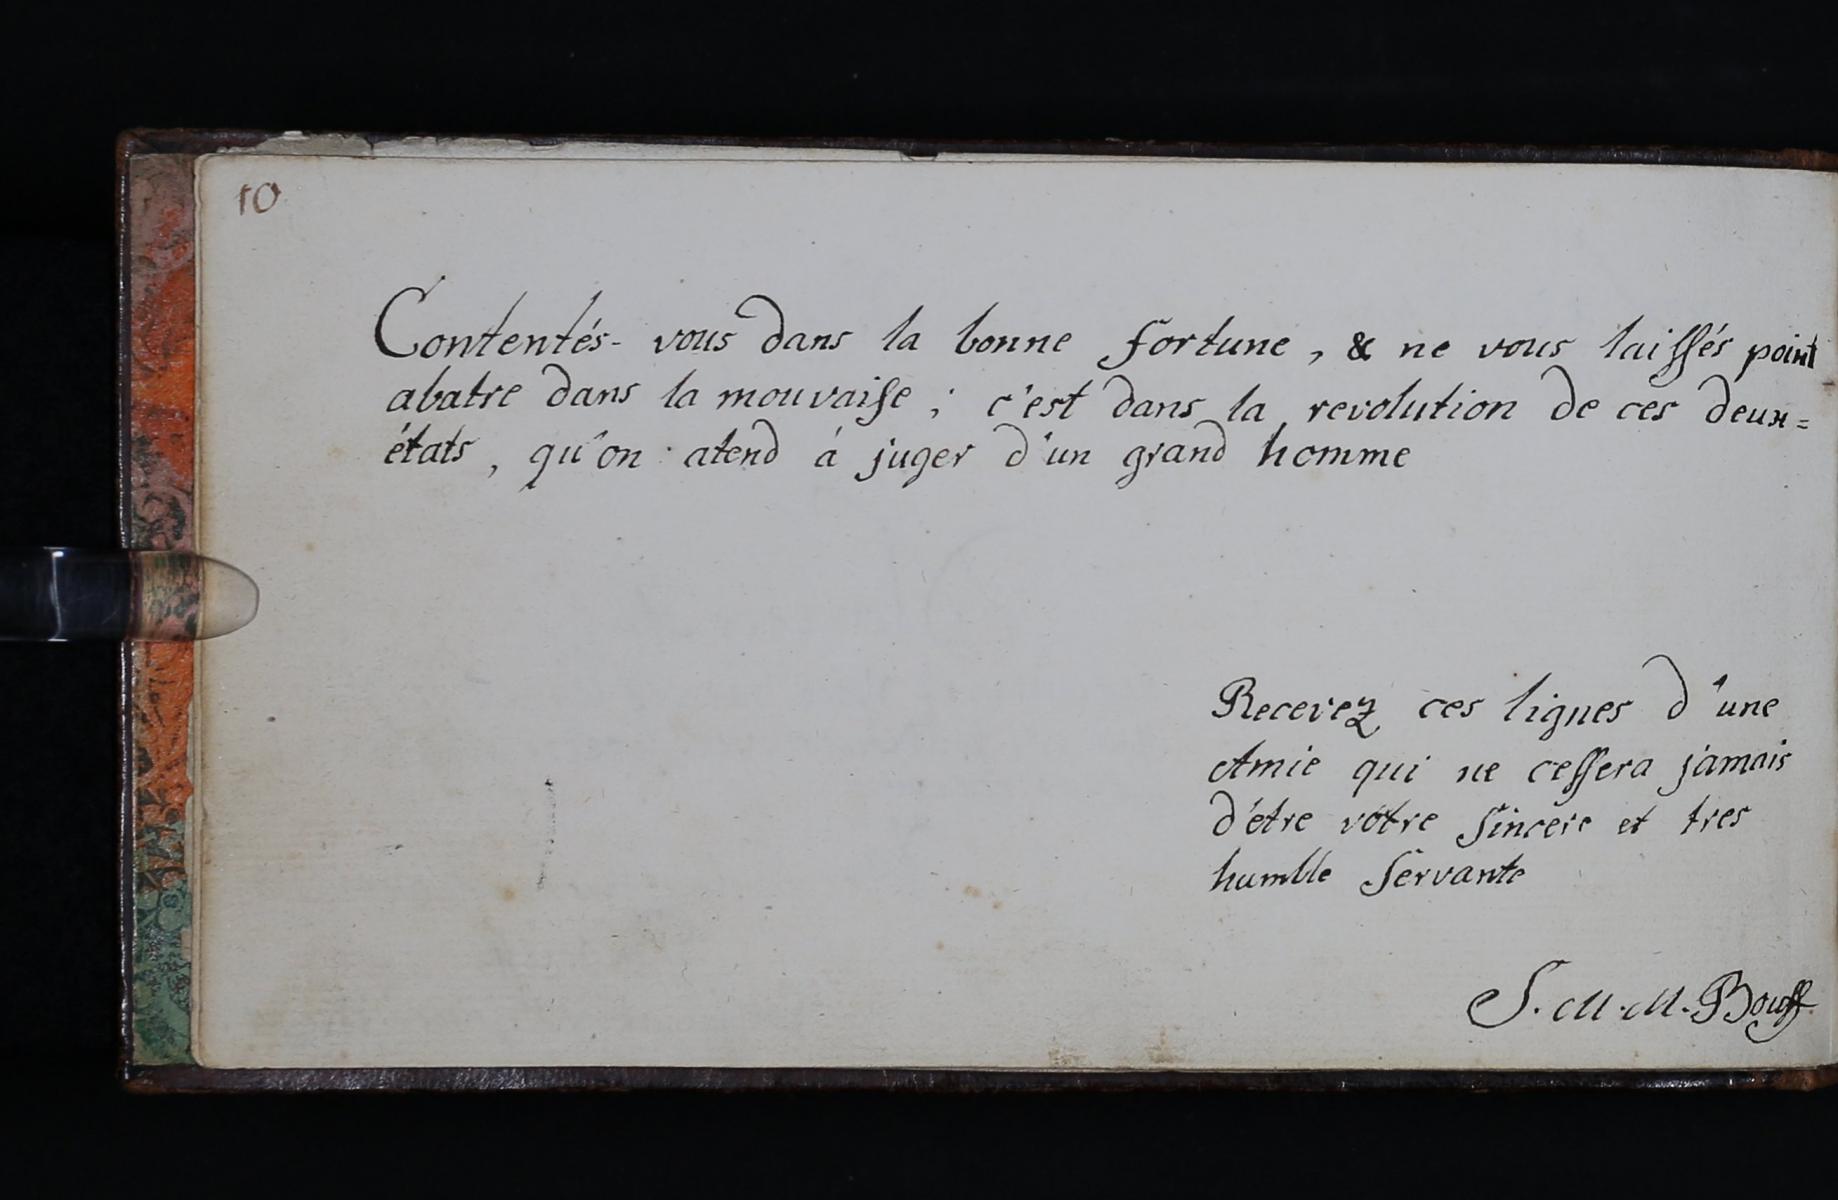 10
Contentés-vous dans la bonne fortune, & ne vous laissés point
abatre dans la mouvaise; c'est dans la revolution de ces deux=
états, qu'on atend à juger d'un grand homme
Recevez ces lignes d'une
Amie qui ne cessera jamais
d'étre vôtre sincere et tres
humble Servante
S. M. M. Bouff